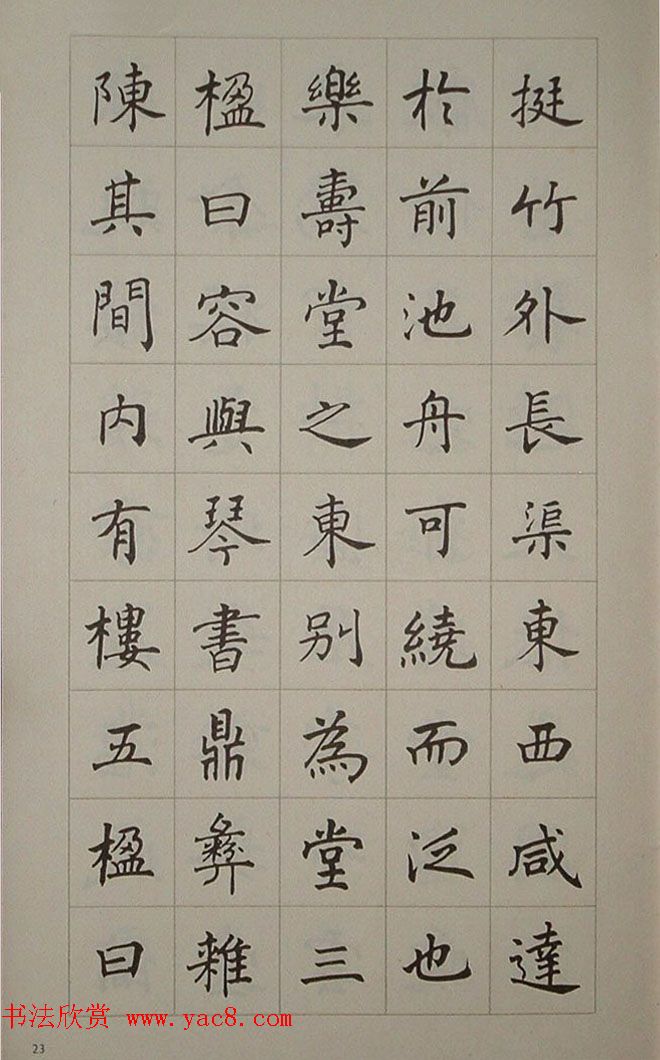 挺竹外長渠東西咸達
於前池舟可繞而泛也
樂壽堂之東別為堂三
楹曰容與琴書鼎彝雜
陳其間內有樓五楹曰
书法欣赏 www.yac8.com
23